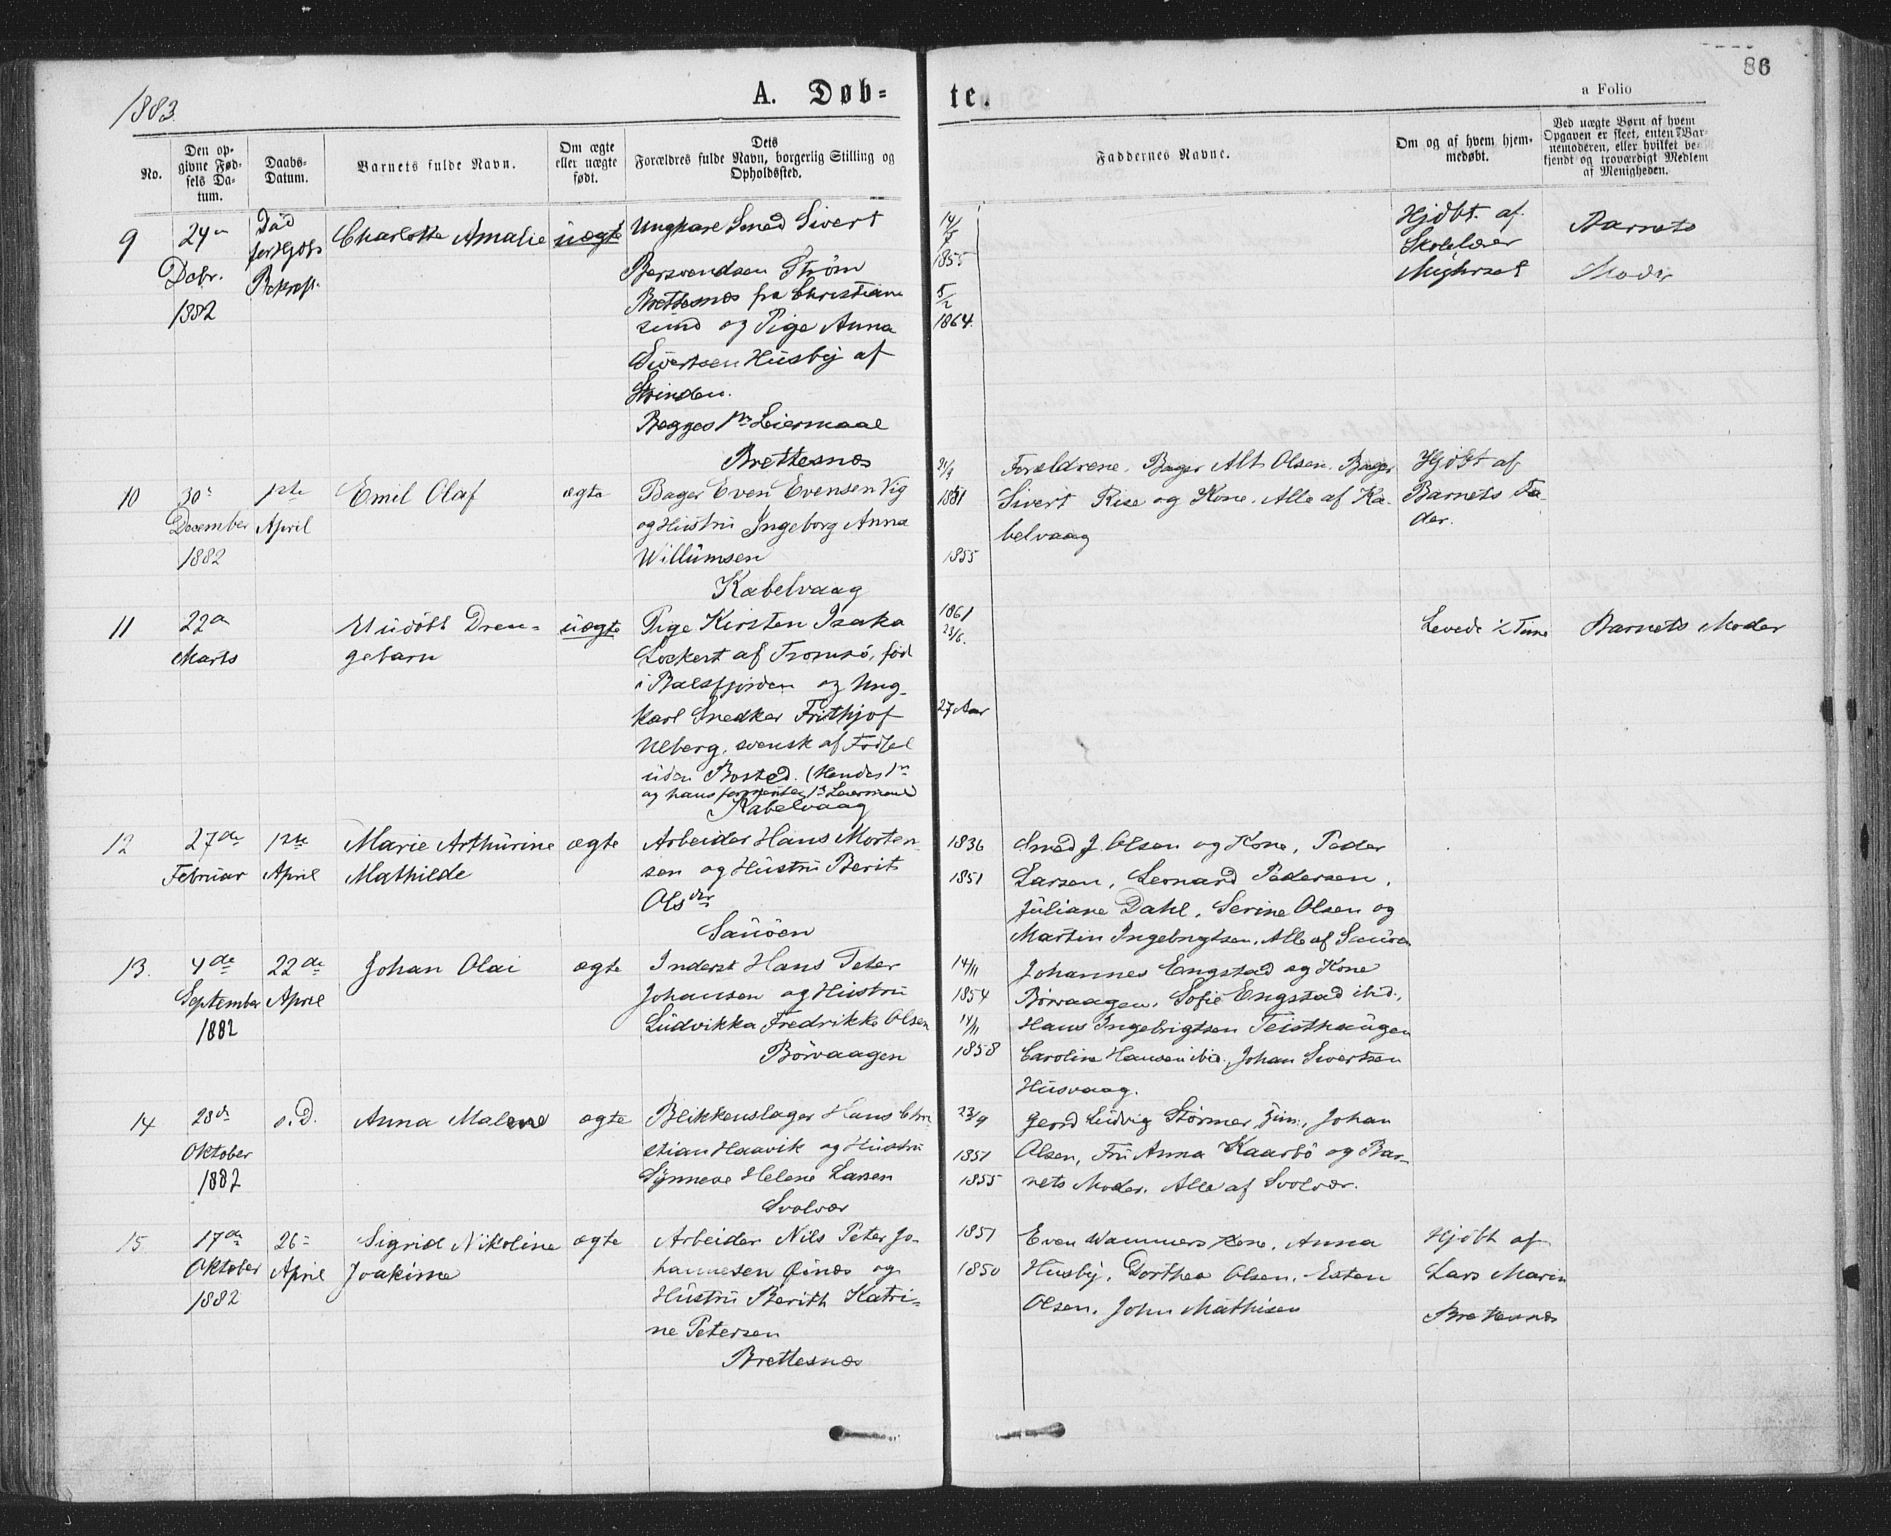 1883
A. Døb-
te.
86
a Folio
No.
Den op-
givne Fød-
sels Da-
tum.
Daabs-
Datum.
Barnets fulde Navn.
Om ægte
eller uægte
født.
Dets
Forældres fulde Navn, borgerlig Stilling og
Opholdssted.
Faddernes Navne.
Om og af hvem hjem-
medøbt.
Ved uægte Børn af hvem
Opgaven er skeet, enten Bar-
nemoderen, eller hvilket be-
kjendt og troværdigt Medlem
af Menigheden.
9
24
Decbr.
1882
Død
før Hjdbs
Bekræft.
Charlotte Amalie
uægte
Ungkarl Smed Sivert
Bersvendsen Strøm
Brettesnæs fra Christian
sund og Pige Anna
Sivertsen Husby af
Strinden.
Begges 1ste Leiermaal
Brettesnæs
14/5
1855
5/2
1864.
Hjdbt. af
Skolelærer
Barnets
Moder
10
30
December
1882
1ste
April
Emil Olaf
ægte
Bager Even Evensen Vig
og Hustru Ingeborg Anna
Willumsen
Kabelvaag
21/9
1851
1855
Forældrene. Bager Alt Olsen. Bager
Sivert Rise og Kone. Alle af Ka-
belvaag
Hjdbt af
Barnets Fa-
der.
11
22de
Marts
Et udøbt Dren-
gebarn
uægte
Pige Kirsten Isaka
Lockert af Tromsø, fød
i Balsfjorden og Ung-
karl Snedker Frithjof
Ulberg, svensk af Fødsel
uden Bosted. (Hendes 1ste
og hans formentlig 1ste Leiermaal
Kabelvaag
1861
23/6.
27 Aar
Levede 1/2 Time
Barnets Moder
12
27de
Februar
1ste
April
Marie Arthurine
Mathilde
ægte
Arbeider Hans Morten-
sen og Hustru Berit
Olsdtr
Sauøen
1836
1851
Smed J. Olsen og Kone, Peder
Larsen, Leonard Pedersen,
Juliane Dahl, Serine Olsen og
Martin Ingebrigtsen. Alle af Sauøen
13.
4de
September
1882
22de
April
Johan Olai
ægte
Inderst Hans Peter
Johansen og Hustru
Ludvikka Fredrikke Olsen
Børvaagen
14/11
1854
14/11
1858
Johannes Engstad og Kone
Børvaagen. Sofie Engstad ibid.,
Hans Ingebrigtsen Teisthaugen
Caroline Hansen ibid., Johan Sivertsen
Husvaag.
14
28de
Oktober
1882
s.D.
Anna Malene
ægte
Blikkenslager Hans Chri-
stian Haavik og Hustru
Synneve Helene Larsen
Svolvær
23/9
1851
1855
Gerd Ludvig Størmer jun., Johan
Olsen, Fru Anna Kaarbø og Bar-
nets Moder. Alle af Svolvær.
15
17de
Oktober
1882
26
April
Sigrid Nikoline
Joakime
ægte
Arbeider Nils Peter Jo-
hannesen og
Hustru Berith Katri-
ne Petersen
Brettesnæs
1851
1850
Even Wammers Kone. Anna
Husby. Dorthea Olsen. Esten
Olsen. John Mathisen
Hjdbt af
Lars Marin
Brettesnæs